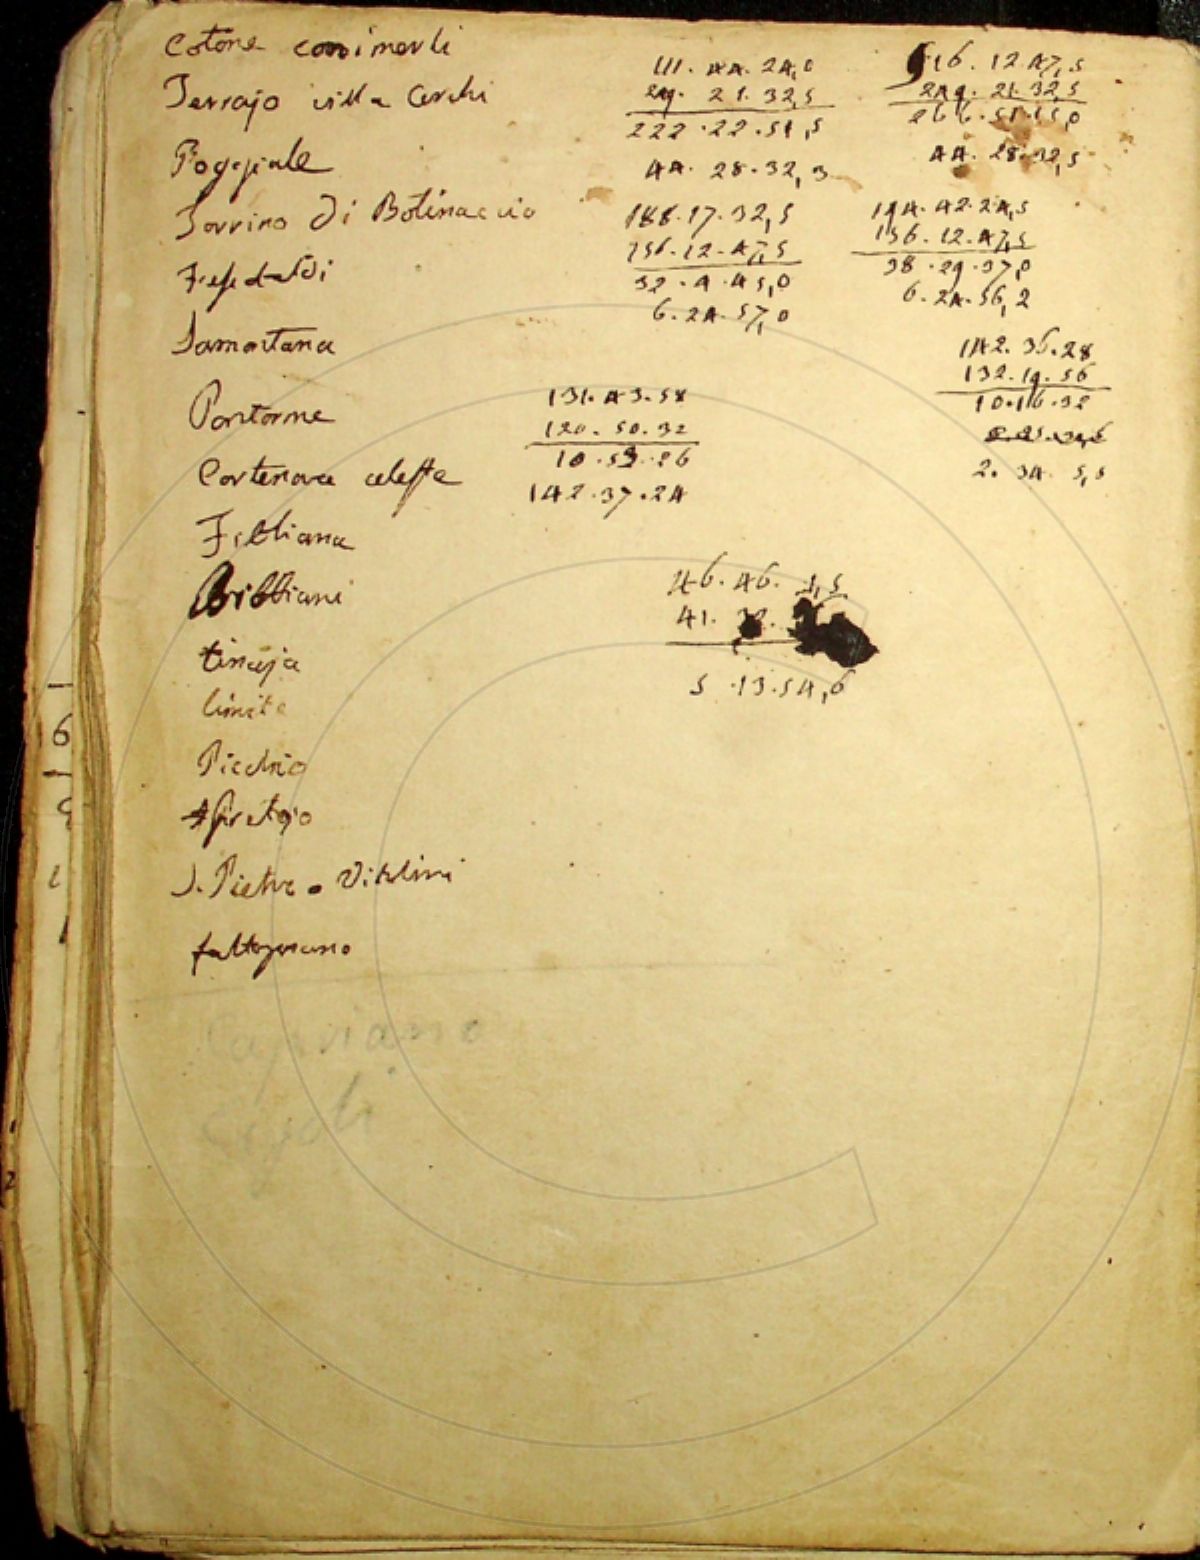 Cotone
111. 44. 24,0
516. 12 47,5
Terrajo villa Cerchi
249. 21. 32,5
249. 21. 32,5
222 . 22 . 51,5
266. 51. 15,0
Poggiale
44. 28. 32, 3
44. 28. 32,5
Torrino di Botinaccio
188. 17. 32,5
194. 42. 24,5
156. 12. 47,5
156. 12. 47,5
32 . 4 . 45,0
38 . 29 . 37,0
6. 24. 57,0
6. 24. 56, 2
Samontana
142. 36. 28
132. 19. 56
Pontorme
131. 43. 58
10. 16. 32
120. 50. 32
10 . 53 . 26
Cortenova
142. 37. 24
2. 34. 5,5
Fibbiana
Bibbiani
46. 46. 1,5
41.
tinaja
5 . 13. 54,6
limite
Picchio
Spretojo
S. Pietro a Vitolini
faltognano
Capraia
Cigoli
6